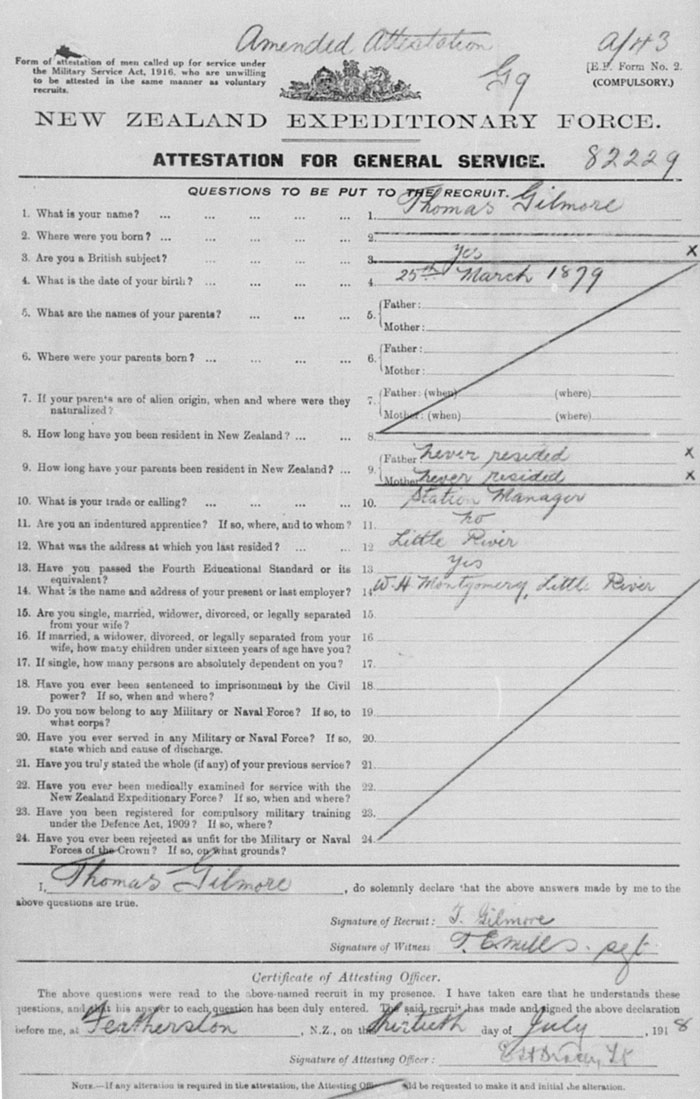 Amended Attestation
A/43
Form of attestation of men called up for service under
the Military Service Act, 1916, who are unwilling
to be attested in the same manner as voluntary
recruits.
G9
[E.F. Form No. 2.
(COMPULSORY.)
NEW ZEALAND EXPEDITIONARY FORCE.
ATTESTATION FOR GENERAL SERVICE. 82229
QUESTIONS TO BE PUT TO THE RECRUIT.
1. What is your name? ... ... ... ... ... 1. Thomas Gilmore
2. Where were you born? ... ... ... ... ... 2.
3. Are you a British subject? ... ... ... ... 3. Yes X
4. What is the date of your birth? ... ... ... ... 4. 25th March 1879
5. What are the names of your parents? ... ... ... 5. {Father:
Mother:
6. Where were your parents born? ... ... ... ... 6. {Father:
Mother:
7. If your parents are of alien origin, when and where were they
naturalized? 7. {Father: (when) (where)
Mother: (when) (where)
8. How long have you been resident in New Zealand? ... ... 8.
9. How long have your parents been resident in New Zealand? ... 9. {Father never resided X
Mother never resided X
10. What is your trade or calling? ... ... ... ... 10. Station Manager
11. Are you an indentured apprentice? If so, where, and to whom? 11. no
12. What was the address at which you last resided? ... ... 12 Little River
13. Have you passed the Fourth Educational Standard or its
equivalent? 13. Yes
14. What is the name and address of your present or last employer? 14. W.H. Montgomery, Little River
15. Are you single, married, widower, divorced, or legally separated
from your wife? 15.
16. If married, a widower, divorced, or legally separated from your
wife, how many children under sixteen years of age have you? 16.
17. If single, how many persons are absolutely dependent on you? 17.
18. Have you ever been sentenced to imprisonment by the Civil
power? If so, when and where? 18.
19. Do you now belong to any Military or Naval Force? If so, to
what corps? 19.
20. Have you ever served in any Military or Naval Force? If so,
state which and cause of discharge. 20.
21. Have you truly stated the whole (if any) of your previous service? 21.
22. Have you ever been medically examined for service with the
New Zealand Expeditionary Force? If so, when and where? 22.
23. Have you been registered for compulsory military training
under the Defence Act, 1909? If so, where? 23.
24. Have you ever been rejected as unfit for the Military or Naval
Forces of the Crown? If so, on what grounds? 24.
I, Thomas Gilmore, do solemnly declare that the above answers made by me to the
above questions are true.
Signature of Recruit: T. Gilmore
Signature of Witness T. E. Mills. sgt
Certificate of Attesting Officer.
The above questions were read to the above-named recruit in my presence. I have taken care that he understands these
questions, and that his answer to each question has been duly entered. The said recruit has made and signed the above declaration
before me, at Featherston, N.Z., on the thirtieth day of July, 1918
Signature of Attesting Officer: Lt
NOTE.—If any alteration is required in the attestation, the Attesting should be requested to make it and initial the alteration.